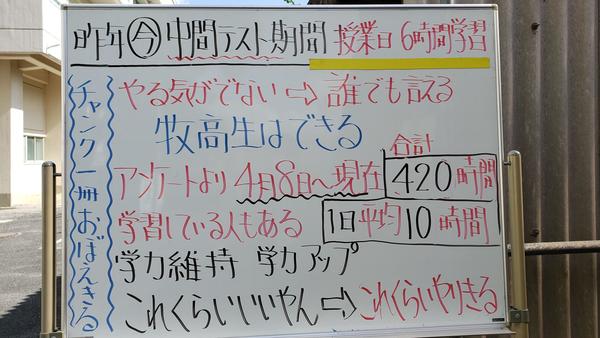 昨年㋿中間テスト期間 授業日 6時間学習
チャンク一冊おぼえきる
やる気がでない⇨誰でも言える
牧高生はできる
合計
アンケートより 4月8日〜現在 420時間
学習している人もある 1日平均10時間
学力維持 学力アップ
これくらいいいやん⇨これくらいやりきる